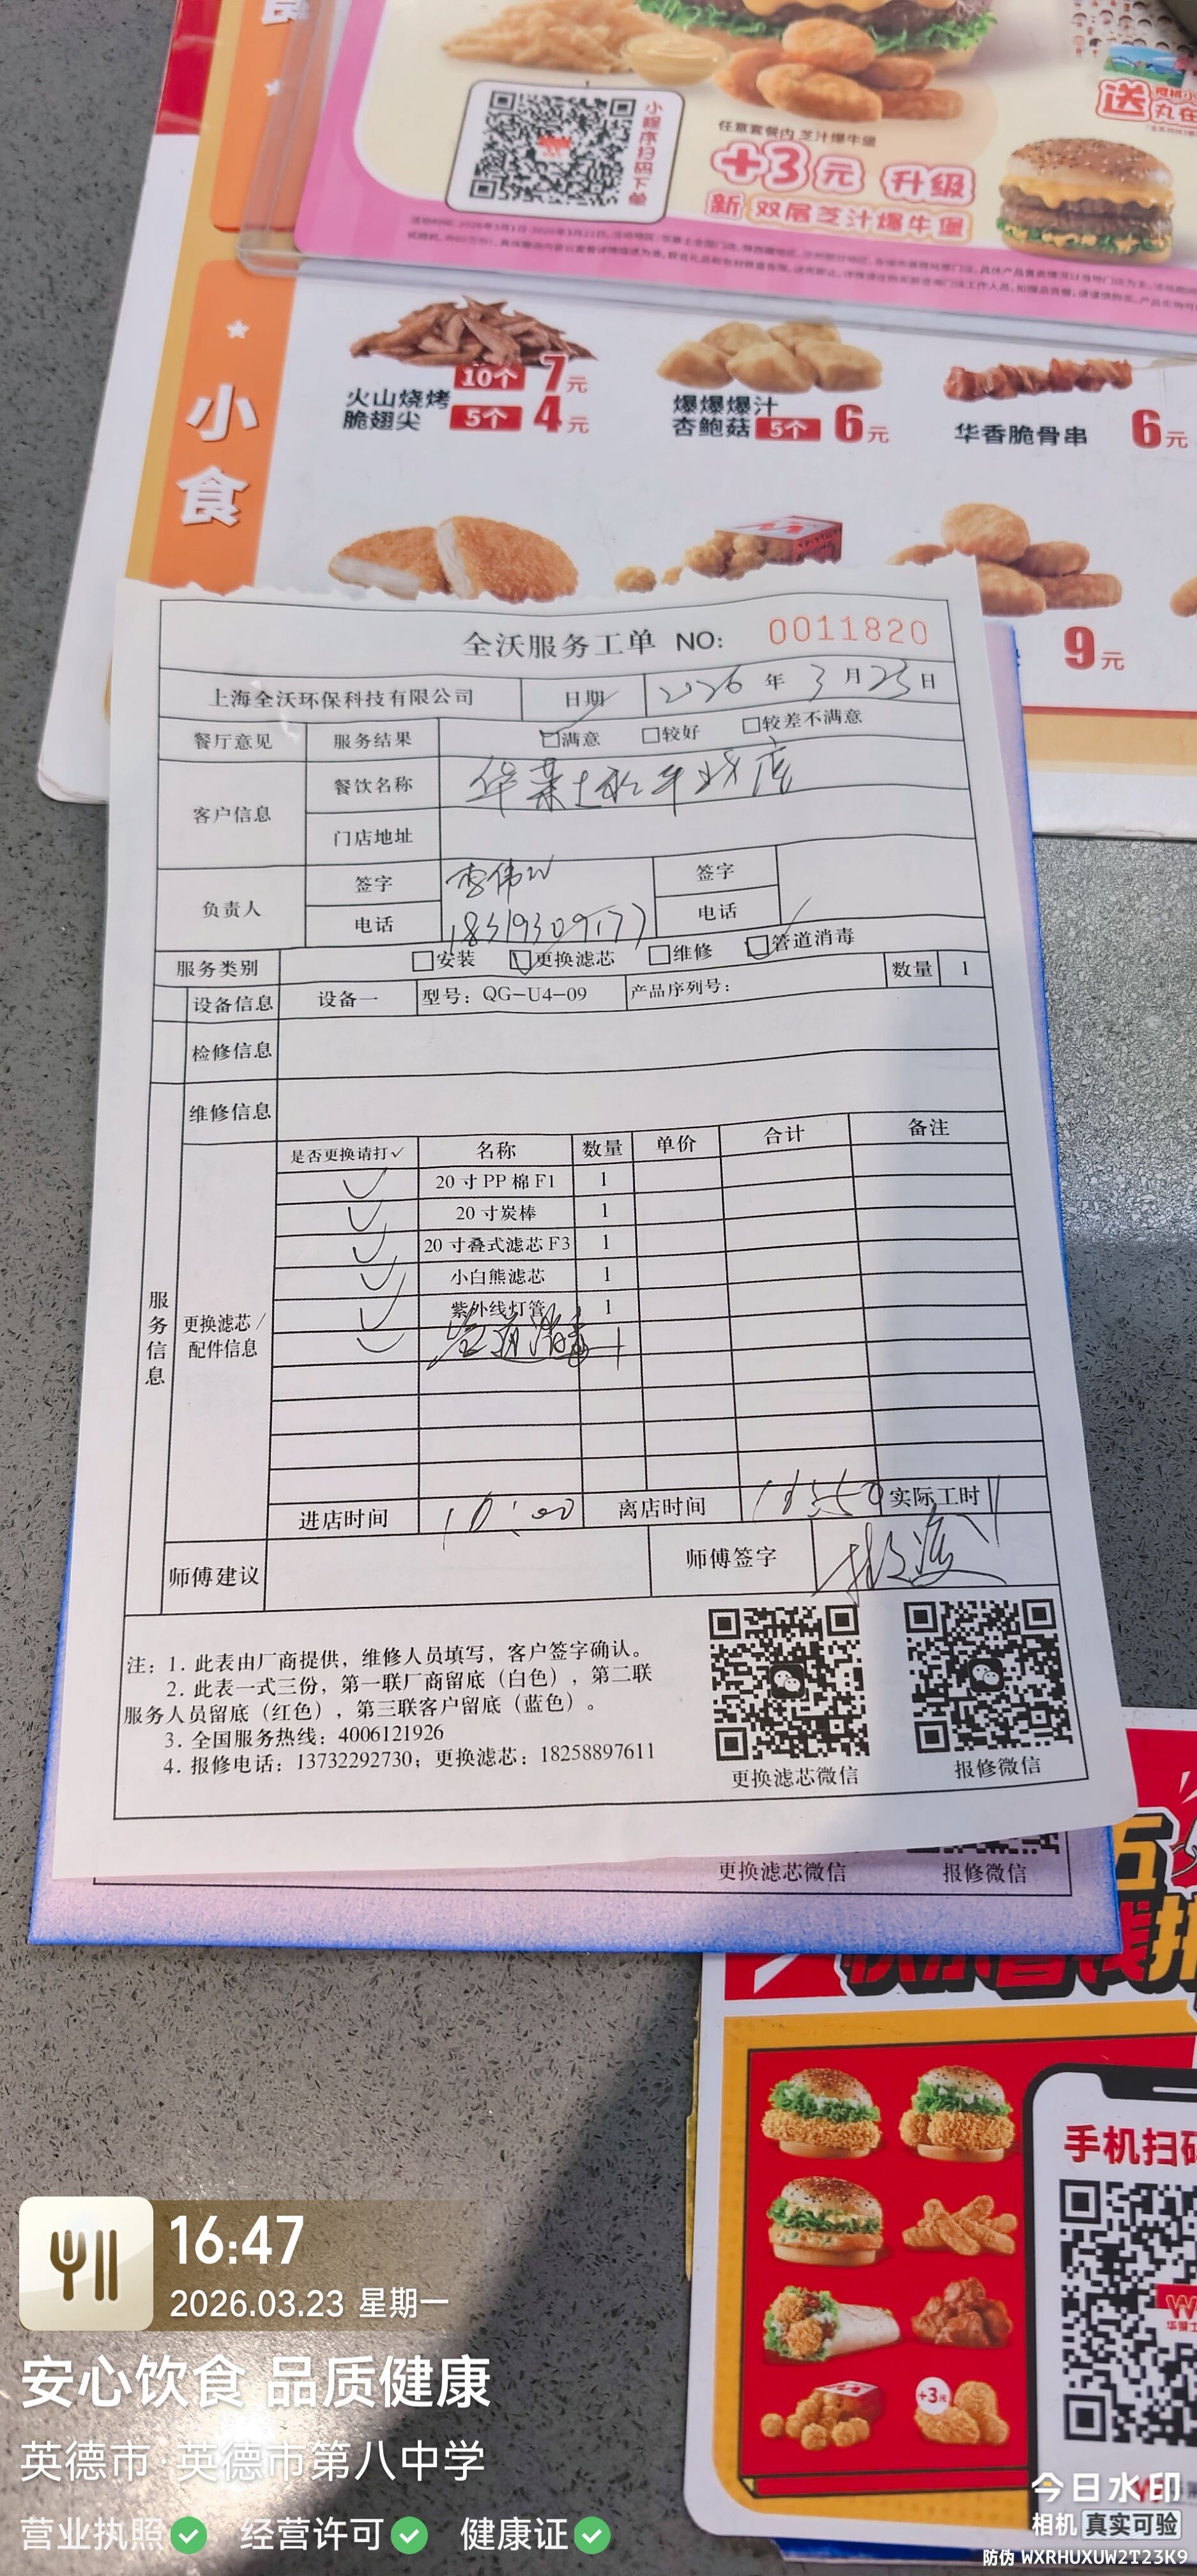 小程序扫码下单
任意套餐内 芝汁爆牛堡
+3元 升级
新 双层芝汁爆牛堡
送
小食
火山烧烤
脆翅尖
10个 7元
5个 4元
爆爆爆汁
杏鲍菇 5个 6元
华香脆骨串 6元
9元
全沃服务工单 NO: 0011820
上海全沃环保科技有限公司 日期 2026年3月23日
餐厅意见 服务结果 ☑满意 □较好 □较差不满意
客户信息 餐饮名称 华莱士
门店地址
负责人 签字 李伟 签字
电话 电话
服务类别 □安装 ☑更换滤芯 □维修 ☑管道消毒
设备信息 设备一 型号:QG-U4-09 产品序列号: 数量 1
检修信息
维修信息
服务信息
更换滤芯/配件信息
是否更换请打✓ 名称 数量 单价 合计 备注
✓ 20寸PP棉F1 1
✓ 20寸炭棒 1
✓ 20寸叠式滤芯F3 1
✓ 小白熊滤芯 1
✓ 紫外线灯管 1
✓ 管道消毒 1
进店时间 离店时间 实际工时
师傅建议 师傅签字
注:1. 此表由厂商提供,维修人员填写,客户签字确认。
2. 此表一式三份,第一联厂商留底(白色),第二联
服务人员留底(红色),第三联客户留底(蓝色)。
3. 全国服务热线:4006121926
4. 报修电话:13732292730;更换滤芯:18258897611
更换滤芯微信 报修微信
更换滤芯微信 报修微信
手机扫码
+3元
16:47
2026.03.23 星期一
安心饮食 品质健康
英德市·英德市第八中学
营业执照 经营许可 健康证
今日水印
相机 真实可验
防伪 WXRHUXUW2T23K9